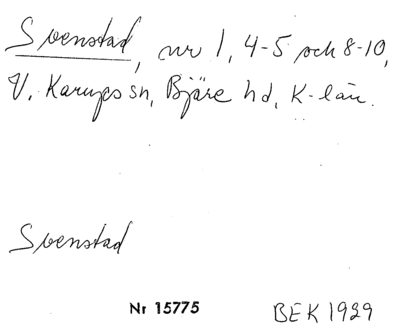 Svenstad, nr 1, 4-5 och 8-10,
V. Karups sn, Bjäre hd, K-län.
Svenstad
Nr 15775
BEK 1929